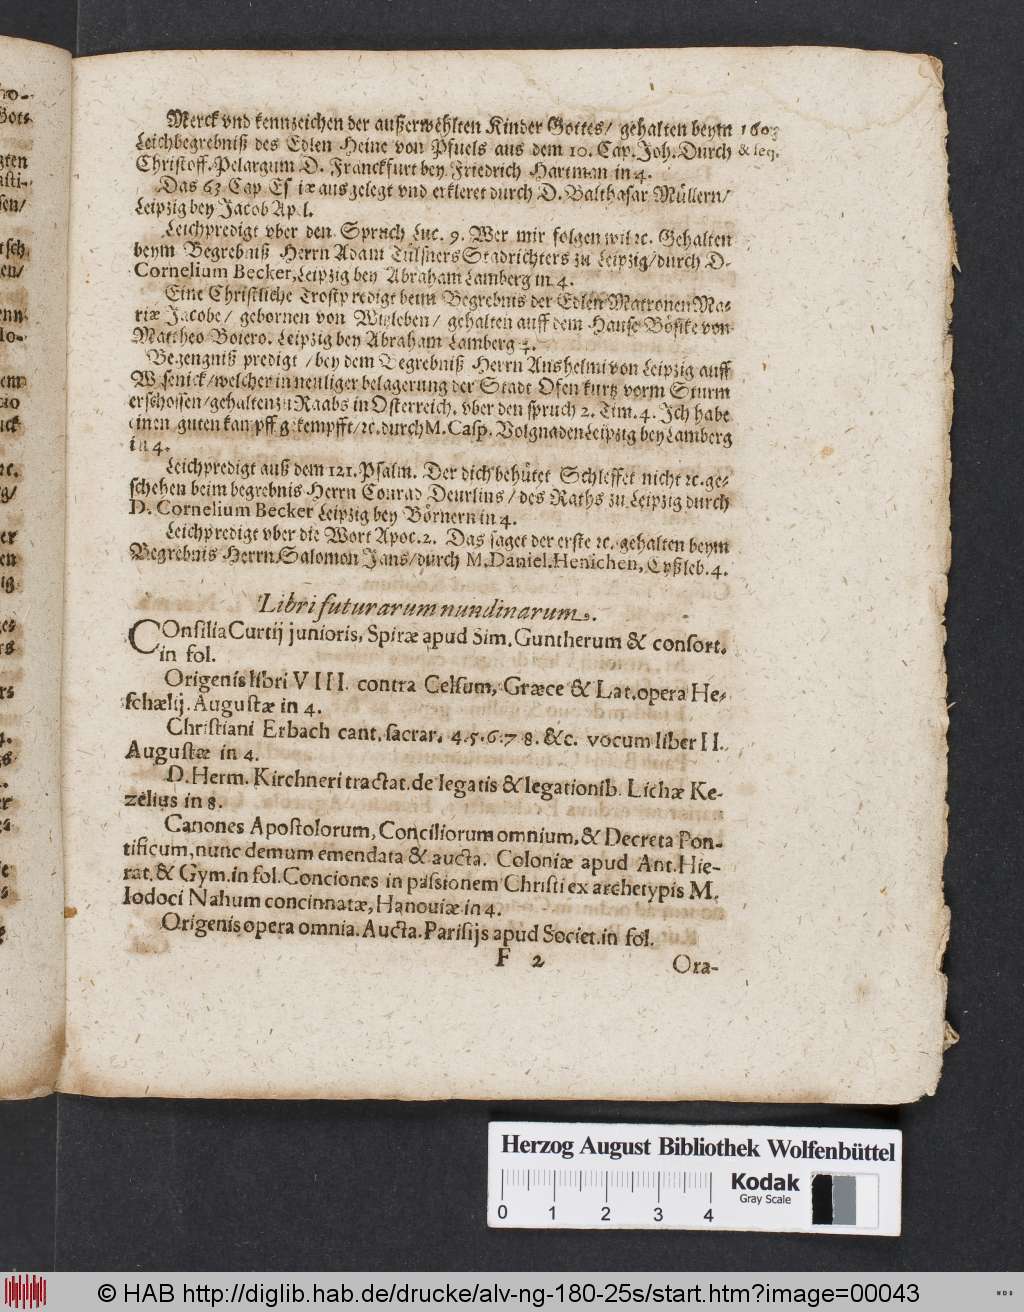 Merck vnd kennzeichen der außerwehlten Kinder Gottes/ gehalten beym 1603
Leichbegrebniß des Edlen Heine von Pfuels aus dem 10. Cap. Joh. Durch & seq.
Christoff. Pelargum D. Franckfurt bey Friedrich Hartman in 4.
Das 63 Cap Esaiæ ausgelegt vnd erkleret durch D. Balthasar Müllern/
Leipzig bey Jacob Apel.
Leichpredigt vber den Spruch Luc. 9. Wer mir folgen wil ꝛc. Gehalten
beym Begrebniß Herrn Adam Tülsners Stadrichters zu Leipzig/ durch D.
Cornelium Becker, Leipzig bey Abraham Lamberg in 4.
Eine Christliche Trostpredigt beim Begrebnis der Edlen Matronen Ma-
riæ Jacobe/ gebornen von Wizleben/ gehalten auff dem Hause Böstke von
Mattheo Boiero. Leipzig bey Abraham Lamberg 4.
Begengniß predigt / bey dem Begrebniß Herrn Anshelmi von Leipzig auff
Wesenick/ welcher in neuliger belagerung der Stadt Ofen kurtz vorm Sturm
erschossen/ gehalten zu Raabs in Osterreich. vber den spruch 2. Tim. 4. Ich habe
einen guten kampff gekempfft/ ꝛc. durch M. Casp. Volgnaden Leipzig bey Lamberg
in 4.
Leichpredigt auß dem 121. Psalm. Der dich behütet Schleffet nicht ꝛc. ge-
schehen beim begrebnis Herrn Conrad Deurlins/ des Raths zu Leipzig durch
D. Cornelium Becker Leipzig bey Börnern in 4.
Leichpredigt vber die Wort Apoc. 2. Das saget der erste ꝛc. gehalten beym
Begrebnis Herrn Salomon Jans/ durch M. Daniel. Henichen, Eyßleb. 4.
Libri futurarum nundinarum.
COnsilia Curtij junioris, Spiræ apud Sim. Guntherum & consort.
in fol.
Origenis libri VIII. contra Celsum, Græce & Lat. opera He-
schælij. Augustæ in 4.
Christiani Erbach cant. sacrar. 4. 5. 6. 7 8. &c. vocum liber II.
Augustæ in 4.
D. Herm. Kirchneri tractat. de legatis & legationib. Lichæ Ke-
zelius in 8.
Canones Apostolorum, Conciliorum omnium, & Decreta Pon-
tificum, nunc demum emendata & aucta. Coloniæ apud Ant. Hie-
rat. & Gym. in fol. Conciones in passionem Christi ex archetypis M.
Iodoci Nahum concinnatæ, Hanoviæ in 4.
Origenis opera omnia. Aucta. Parisijs apud Societ. in fol.
F 2 Ora-
Herzog August Bibliothek Wolfenbüttel
Kodak
Gray Scale
0 1 2 3 4
© HAB http://diglib.hab.de/drucke/alv-ng-180-25s/start.htm?image=00043